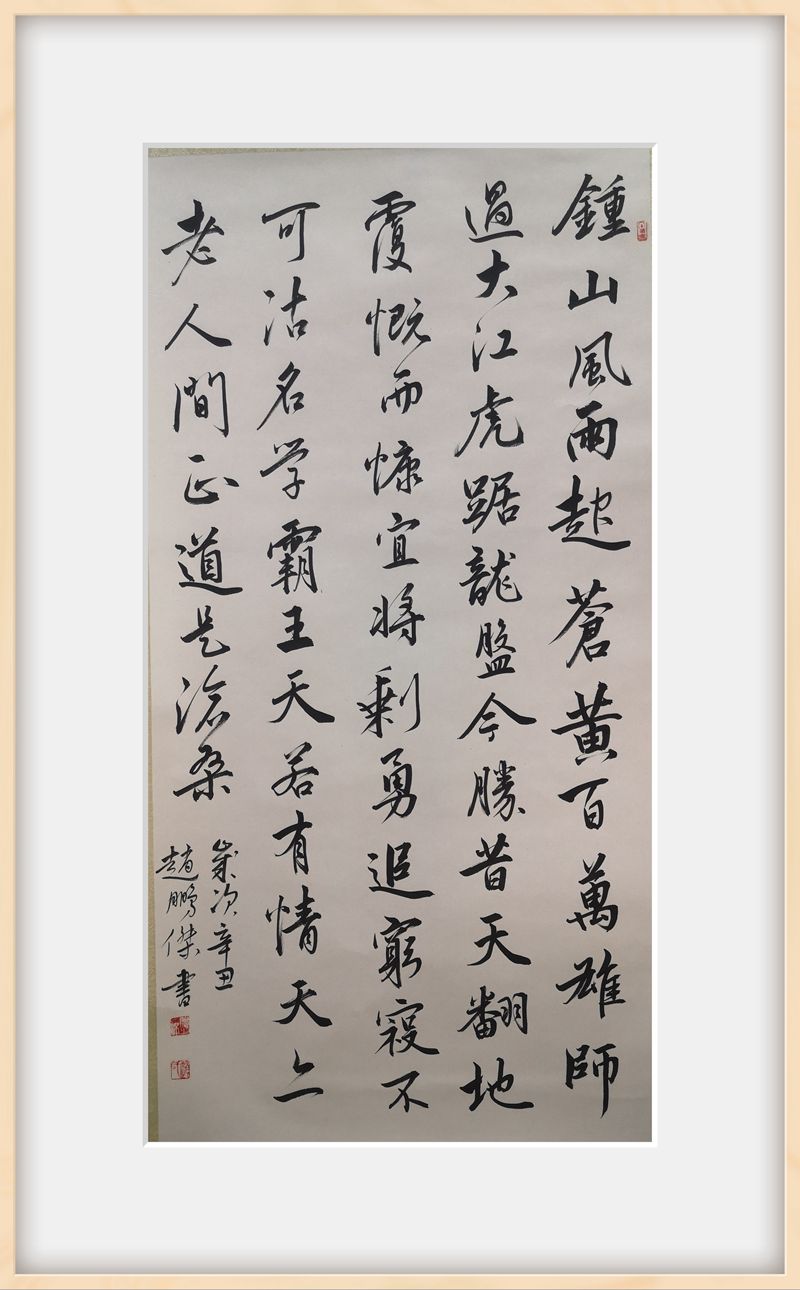 鍾山風雨起蒼黃百萬雄師
過大江虎踞龍盤今勝昔天翻地
覆慨而慷宜将剩勇追窮寇不
可沽名学霸王天若有情天亦
老人間正道是滄桑
歲次辛丑
趙鵬傑書